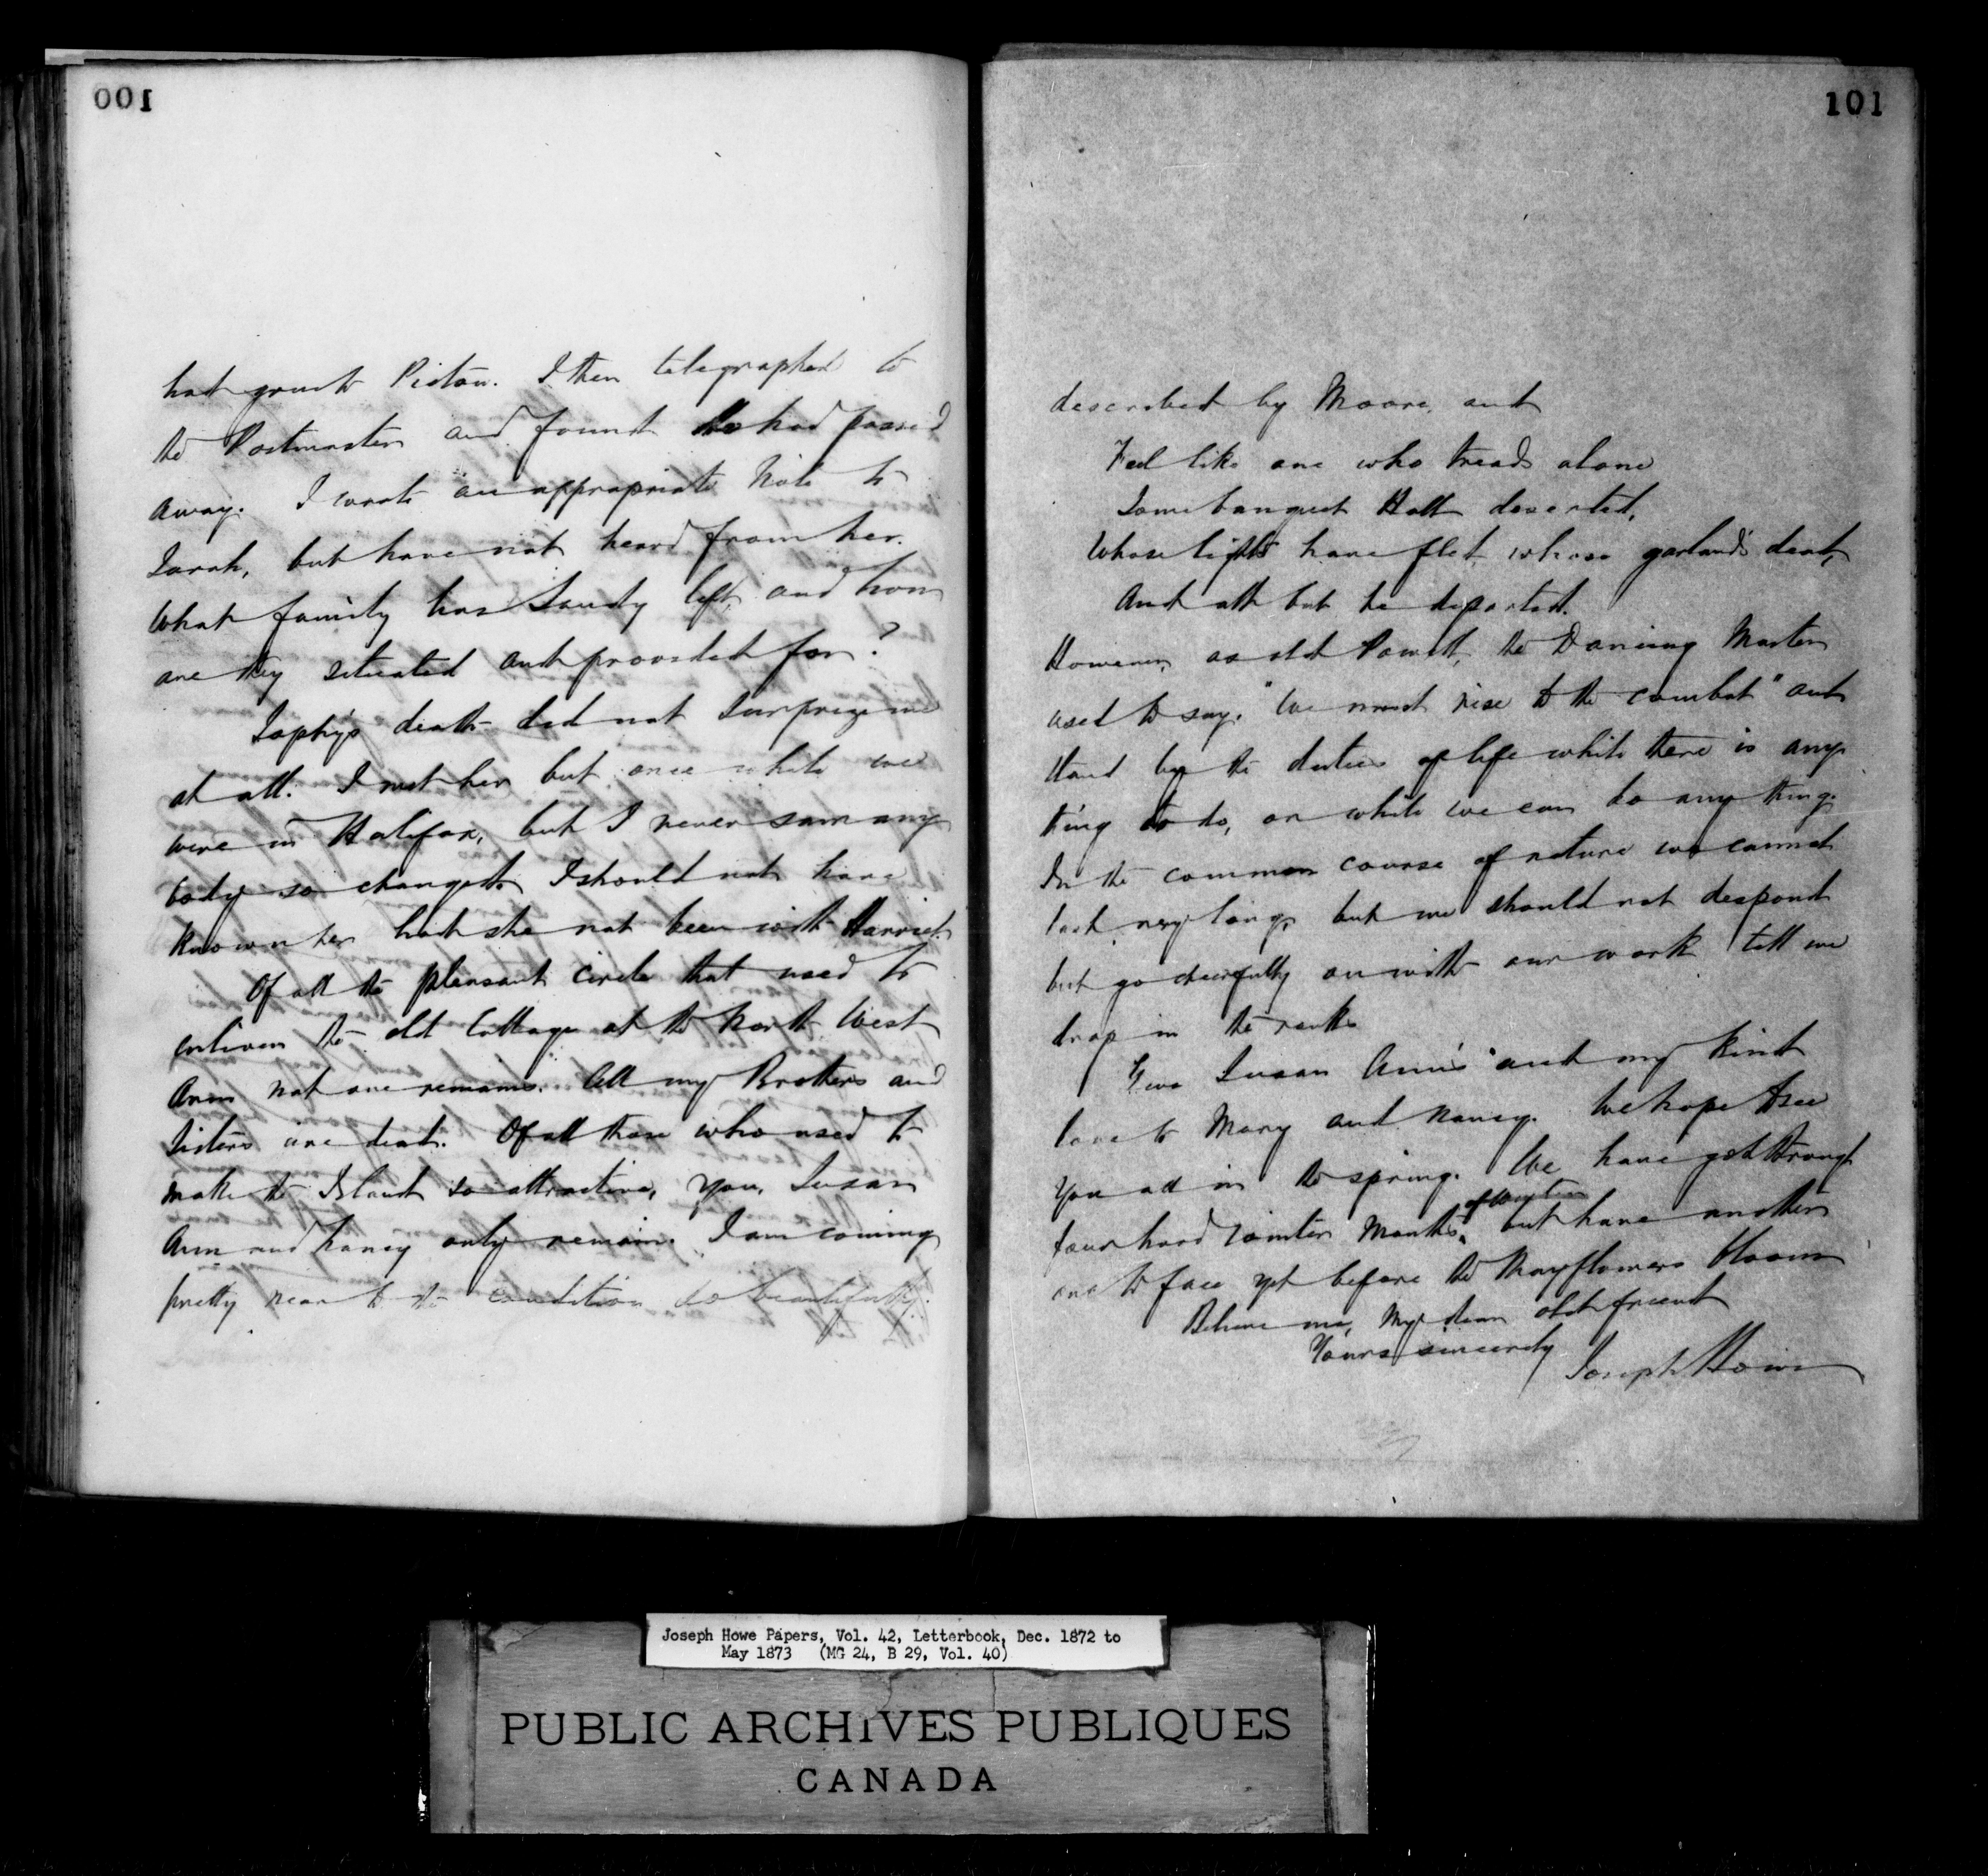 001
had gone to Pictou. I then telegraphed to
the Postmaster and found he had passed
away. I wrote an appropriate Note to
Sarah, but have not heard from her.
What family has Sandy left, and how
are they situated and provided for?
Sophy's death did not surprize me
at all. I met her but once while we
were in Halifax, but I never saw any
body so changed. I should not have
known her had she not been with Harriet.
Of all the pleasant circle that used to
enliven the old Cottage at the North West
Arm not one remains. All my Brothers and
Sisters are dead. Of all those who used to
make the Island so attractive, you, Susan
Ann and Nancy only remain. I am coming
pretty near to the condition so beautifully
101
described by Moore, and
Feel like one who treads alone
Some banquet Hall deserted,
Whose lights have fled, whose garlands dead,
And all but he departed.
However, as old Powell, the Dancing Master
used to say, "We must rise to the combat" and
stand by the duties of life while there is any
thing to do, or while we can do any thing.
In the common course of nature we cannot
last very long, but we should not despond
but go cheerfully on with our work till we
drop in the ranks
Give Susan Ann's and my kind
love to Mary and Nancy. We hope to see
you all in the spring. We have got through
four hard winter Months, of winter but have another
one to face yet before the Mayflowers bloom
Believe me, My dear old friend
Yours sincerely
Joseph Howe
Joseph Howe Papers, Vol. 42, Letterbook, Dec. 1872 to
May 1873 (MG 24, B 29, Vol. 40)
PUBLIC ARCHIVES PUBLIQUES
CANADA